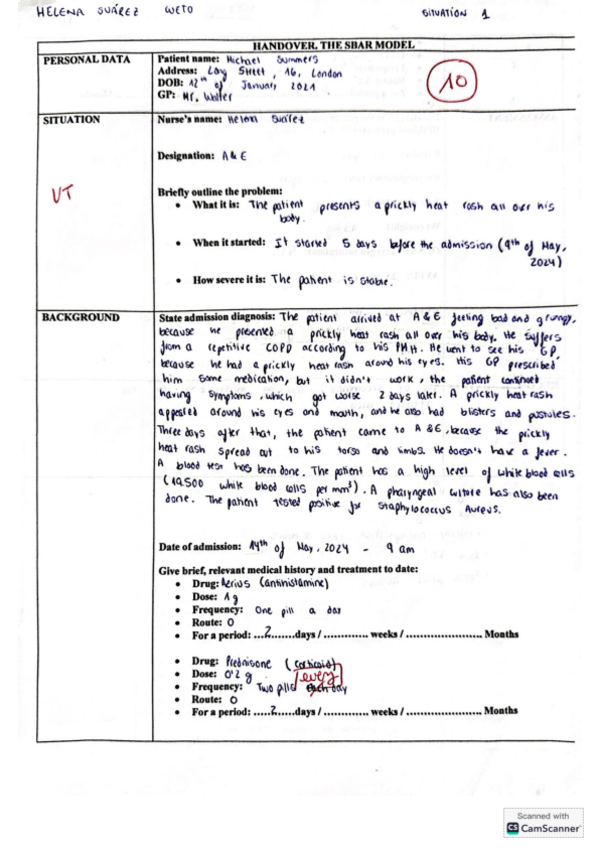 HELENA SUÁREZ WETO SITUATION 1
HANDOVER. THE SBAR MODEL
PERSONAL DATA
Patient name: Michael Summers
Address: Long Street, 16, London
DOB: 12th of January 2021
GP: Mr. Walter
10
SITUATION
VT
Nurse's name: Helena Suárez
Designation: A & E
Briefly outline the problem:
• What it is: The patient presents a prickly heat rash all over his
body.
• When it started: It started 5 days before the admission (9th of May,
2024)
• How severe it is: The patient is stable.
BACKGROUND
State admission diagnosis: The patient arrived at A & E feeling bad and grumpy,
because he presented a prickly heat rash all over his body. He suffers
from a repetitive COPD according to his PMH. He went to see his GP,
because he had a prickly heat rash around his eyes. His GP prescribed
him some medication, but it didn't work, the patient continued
having symptoms, which got worse 2 days later. A prickly heat rash
appeared around his eyes and mouth, and he also had blisters and pustules.
Three days after that, the patient came to A & E, because the prickly
heat rash spread out to his torso and limbs. He doesn't have a fever.
A blood test has been done. The patient has a high level of white blood cells
(19.500 white blood cells per mm³). A pharyngeal culture has also been
done. The patient tested positive for Staphylococcus Aureus.
Date of admission: 14th of May, 2024 - 9 am
Give brief, relevant medical history and treatment to date:
• Drug: Aerius (antihistamine)
• Dose: 1 g
• Frequency: One pill a day
• Route: O
• For a period: ....2.......days / ............. weeks / ...................... Months
• Drug: Prednisone (corticoid)
• Dose: 0'2 g
every
• Frequency: Two pills each day
• Route: O
• For a period: .....2.......days / ............. weeks / ...................... Months
Scanned with
CS CamScanner